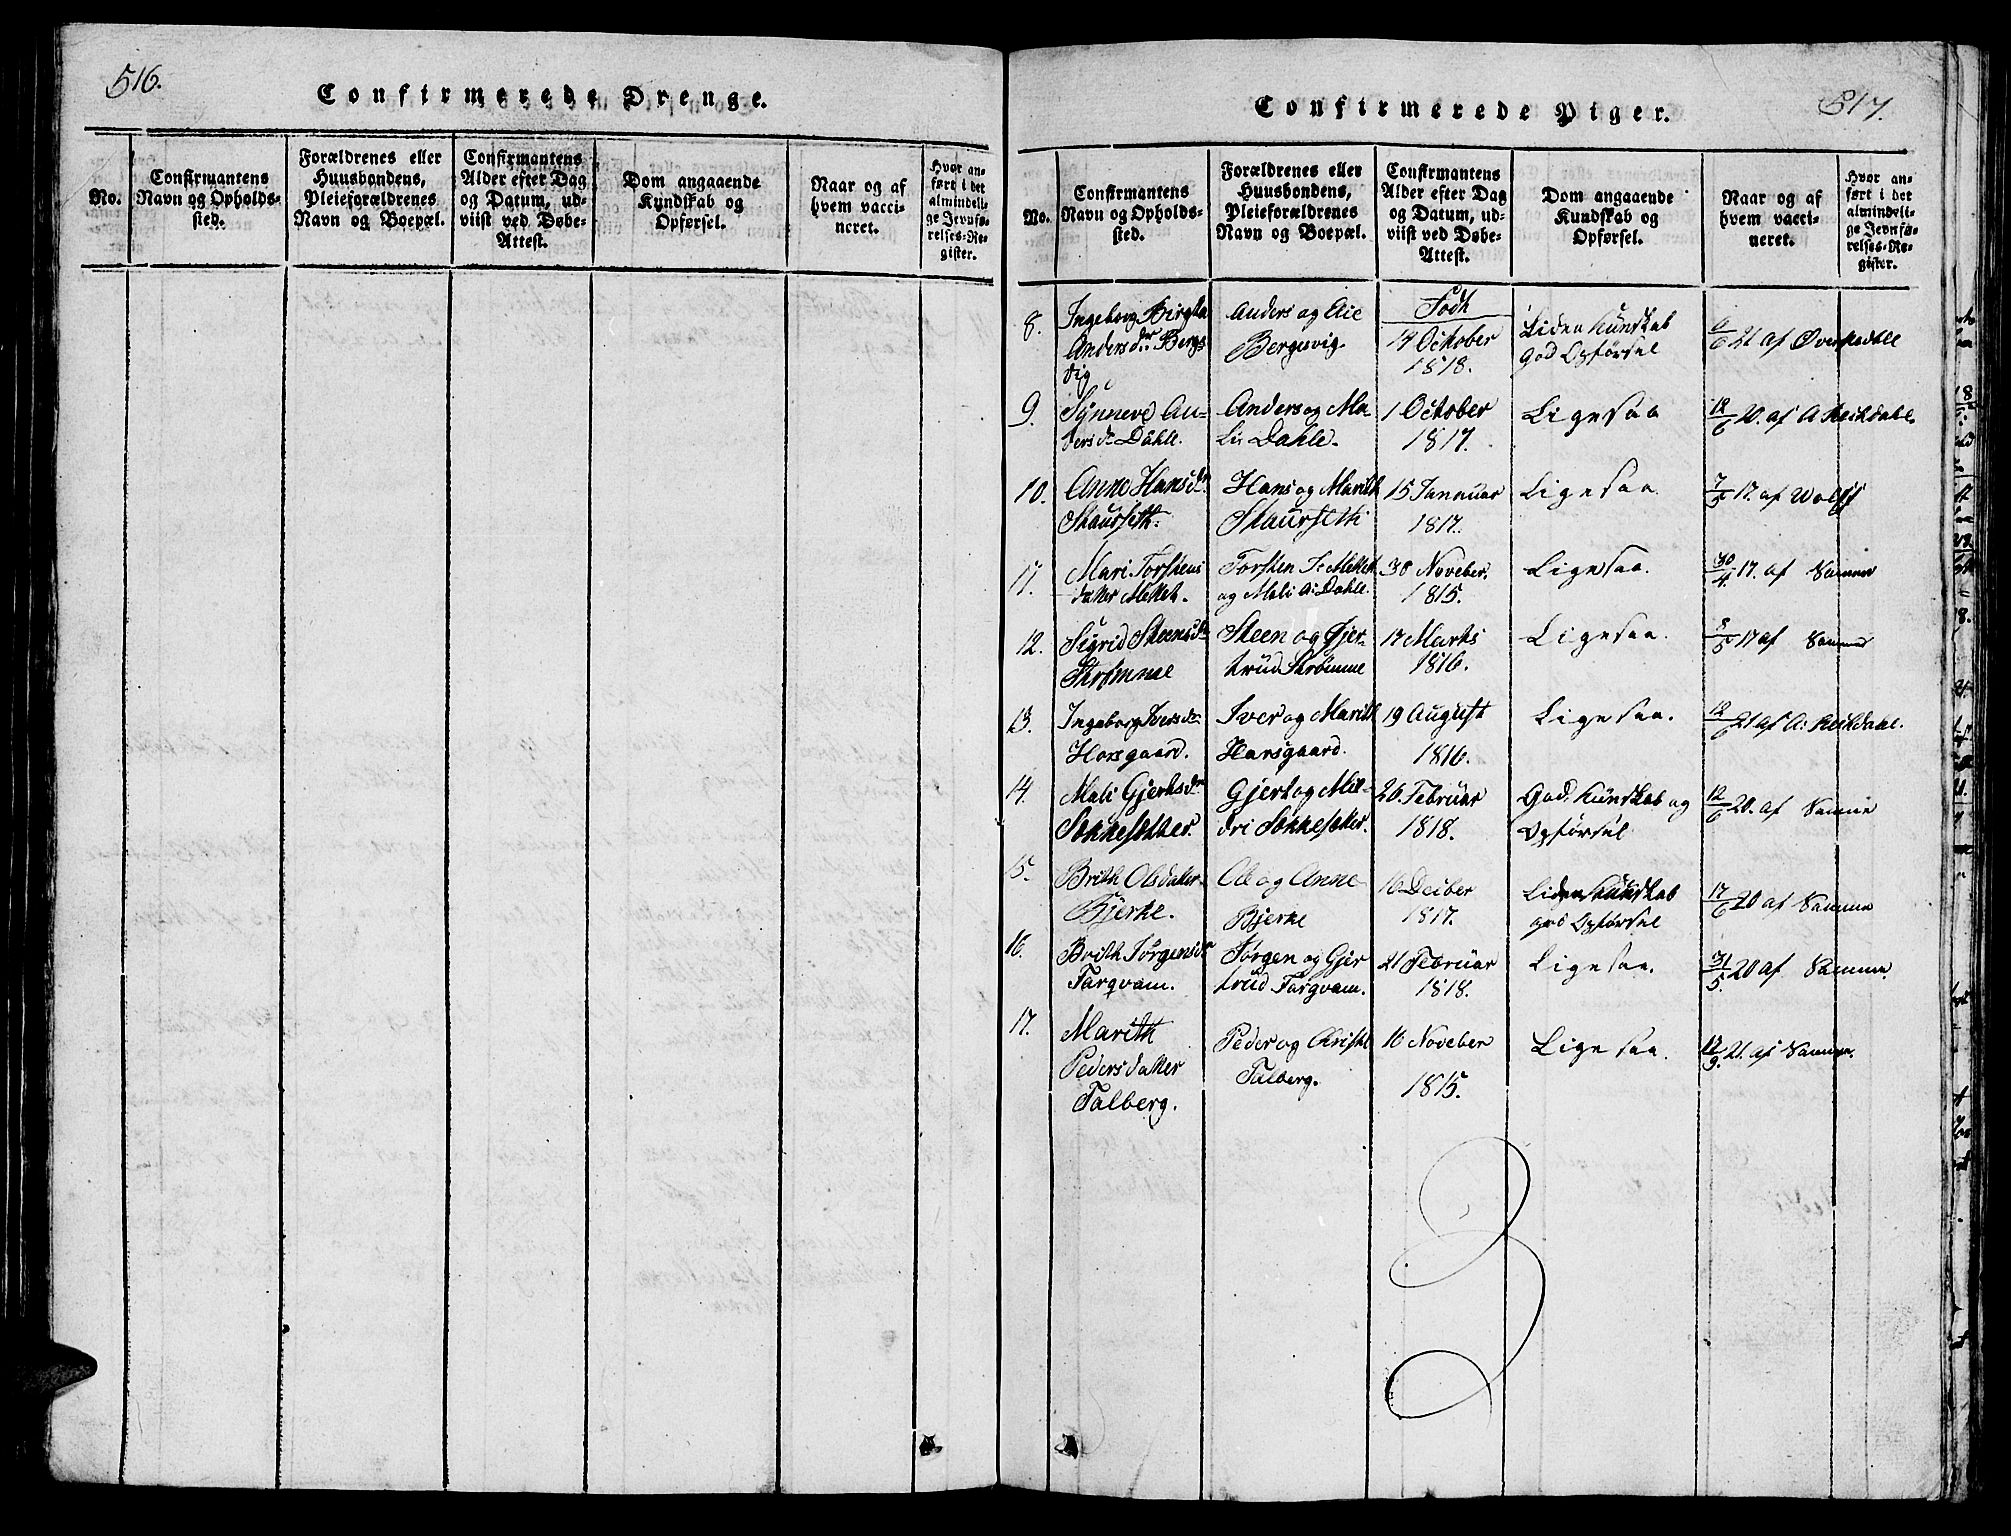 516.
Confirmerede Drenge.
No.
Confirmantens
Navn og Opholds-
sted.
Forældrenes eller
Huusbondens,
Pleieforældrenes
Navn og Boepæl.
Confirmantens
Alder efter Dag
og Datum, ud-
viist ved Døbe-
Attest.
Dom angaaende
Kundskab og
Opførsel.
Naar og af
hvem vacci-
neret.
Hvor an-
ført i det
almindeli-
ge Jevnfø-
relses-Re-
gister.
Confirmerede Piger.
517.
No.
Confirmantens
Navn og Opholds-
sted.
Forældrenes eller
Huusbondens,
Pleieforældrenes
Navn og Boepæl.
Confirmantens
Alder efter Dag
og Datum, ud-
viist ved Døbe-
Attest.
Dom angaaende
Kundskab og
Opførsel.
Naar og af
hvem vacci-
neret.
Hvor an-
ført i det
almindeli-
ge Jevnfø-
relses-Re-
gister.
8.
Ingeborg Birgtha
Andersdr Bergs
vig
Anders og
Bergsvig.
Födt
17 October
1818.
Liden Kundskab
God Opförsel
6/6 21 af
9.
Synneve An-
dersdr Dahle.
Anders og Ma-
li Dahle.
1 October
1817.
Ligesaa
12/6 20. af A
10.
Anne Hansdr
Skaurseth.
Hans og Marith
Skaurseth
15 Januar
1817.
Ligesaa.
7/5 17. af Wolff
11.
Mari Torstens
datter Melket.
Torsten J: Melket
og Mali A: Dahle.
30 Noveber.
1815.
Ligesaa.
30/4 17. af Samme
12.
Sigrid Steensdr
Strømme
Steen og Gjer-
trud Strømme
17 Marts
1816.
Ligesaa.
8/5 17 af Samme
13.
Ingeborg Iversdr
Horsgaard.
Iver og Marith
Horsgaard.
19 August
1816.
Ligesaa.
12/6 21 af A:
14.
Mali Gjertsdr
Sökkesetter.
Gjert og Mil-
dri Sökkesetter.
26. Februar
1818.
God. Kundskab og
Opförsel
12/6 20. af Samme
15.
Brith Olsdatter
Bjerke.
Ole og Anne
Bjerke
16 Deciber
1817.
Liden Kundskab
god Opförsel
17/6 20 af Samme
16.
Brith Jörgensdr
Fargvam.
Jörgen og Gjer
trud Fargvam.
21 Februar
1818.
Ligesaa.
31/5. 20 af Samme
17.
Marith
Pedersdatter
Talberg.
Peder og
Talberg.
16 Noveber
1815.
Ligesaa.
12/9. 21. af Samme.